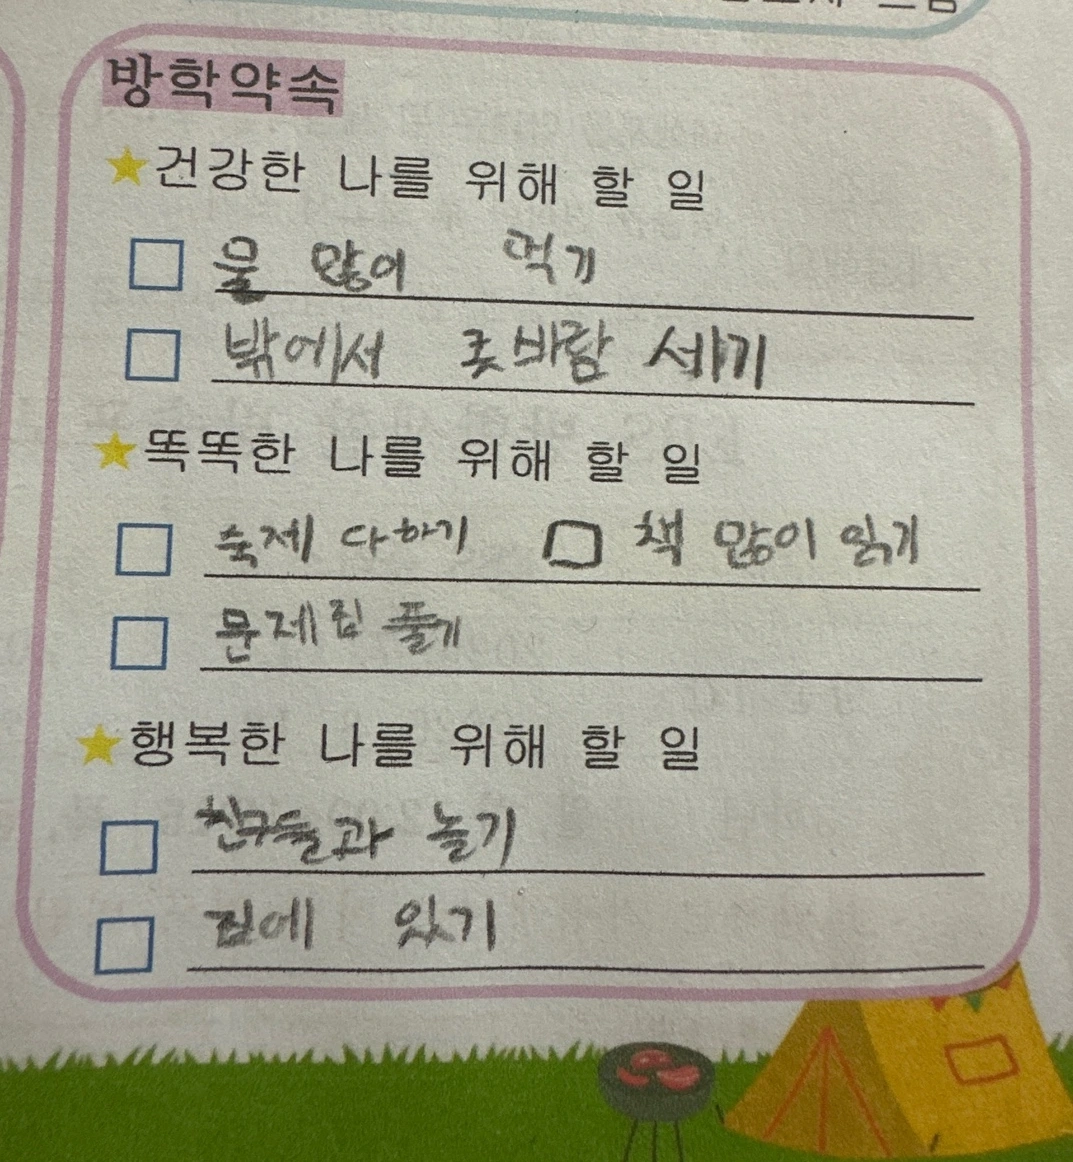 방학약속
★건강한 나를 위해 할 일
□ 물 많이 먹기
□ 밖에서 콧바람 세기
★똑똑한 나를 위해 할 일
□ 숙제 다하기 □ 책 많이 읽기
□ 문제집 풀기
★행복한 나를 위해 할 일
□ 친구들과 놀기
□ 집에 있기